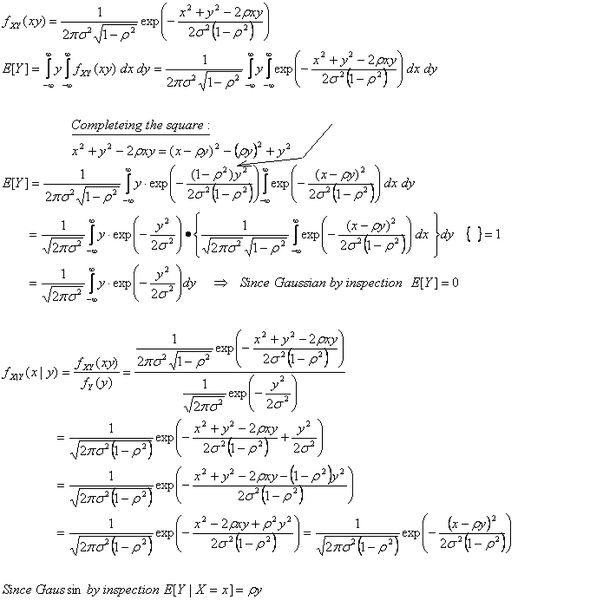 f_{XY}(xy) = \frac{1}{2πσ²\sqrt{1-ρ²}} exp(-\frac{x² + y² - 2ρxy}{2σ²(1-ρ²)})
E[Y] = ∫_{-∞}^{∞} y ∫_{-∞}^{∞} f_{XY}(xy) dx dy = \frac{1}{2πσ²\sqrt{1-ρ²}} ∫_{-∞}^{∞} y ∫_{-∞}^{∞} exp(-\frac{x² + y² - 2ρxy}{2σ²(1-ρ²)}) dx dy
Completeing the square :
x² + y² - 2ρxy = (x - ρy)² - (ρy)² + y²
E[Y] = \frac{1}{2πσ²\sqrt{1-ρ²}} ∫_{-∞}^{∞} y · exp(-\frac{(1-ρ²)y²}{2σ²(1-ρ²)}) ∫_{-∞}^{∞} exp(-\frac{(x-ρy)²}{2σ²(1-ρ²)}) dx dy
= \frac{1}{\sqrt{2πσ²}} ∫_{-∞}^{∞} y · exp(-\frac{y²}{2σ²}) • { \frac{1}{\sqrt{2πσ²}\sqrt{1-ρ²}} ∫_{-∞}^{∞} exp(-\frac{(x-ρy)²}{2σ²(1-ρ²)}) dx } dy { } = 1
= \frac{1}{\sqrt{2πσ²}} ∫_{-∞}^{∞} y · exp(-\frac{y²}{2σ²}) dy ⇒ Since Gaussian by inspection E[Y] = 0
f_{X|Y}(x | y) = \frac{f_{XY}(xy)}{f_Y(y)} = \frac{\frac{1}{2πσ²\sqrt{1-ρ²}} exp(-\frac{x² + y² - 2ρxy}{2σ²(1-ρ²)})}{\frac{1}{\sqrt{2πσ²}} exp(-\frac{y²}{2σ²})}
= \frac{1}{\sqrt{2πσ²(1-ρ²)}} exp(-\frac{x² + y² - 2ρxy}{2σ²(1-ρ²)} + \frac{y²}{2σ²})
= \frac{1}{\sqrt{2πσ²(1-ρ²)}} exp(-\frac{x² + y² - 2ρxy - (1-ρ²)y²}{2σ²(1-ρ²)})
= \frac{1}{\sqrt{2πσ²(1-ρ²)}} exp(-\frac{x² - 2ρxy + ρ²y²}{2σ²(1-ρ²)}) = \frac{1}{\sqrt{2πσ²(1-ρ²)}} exp(-\frac{(x-ρy)²}{2σ²(1-ρ²)})
Since Gaus sin by inspection E[Y | X = x] = ρy